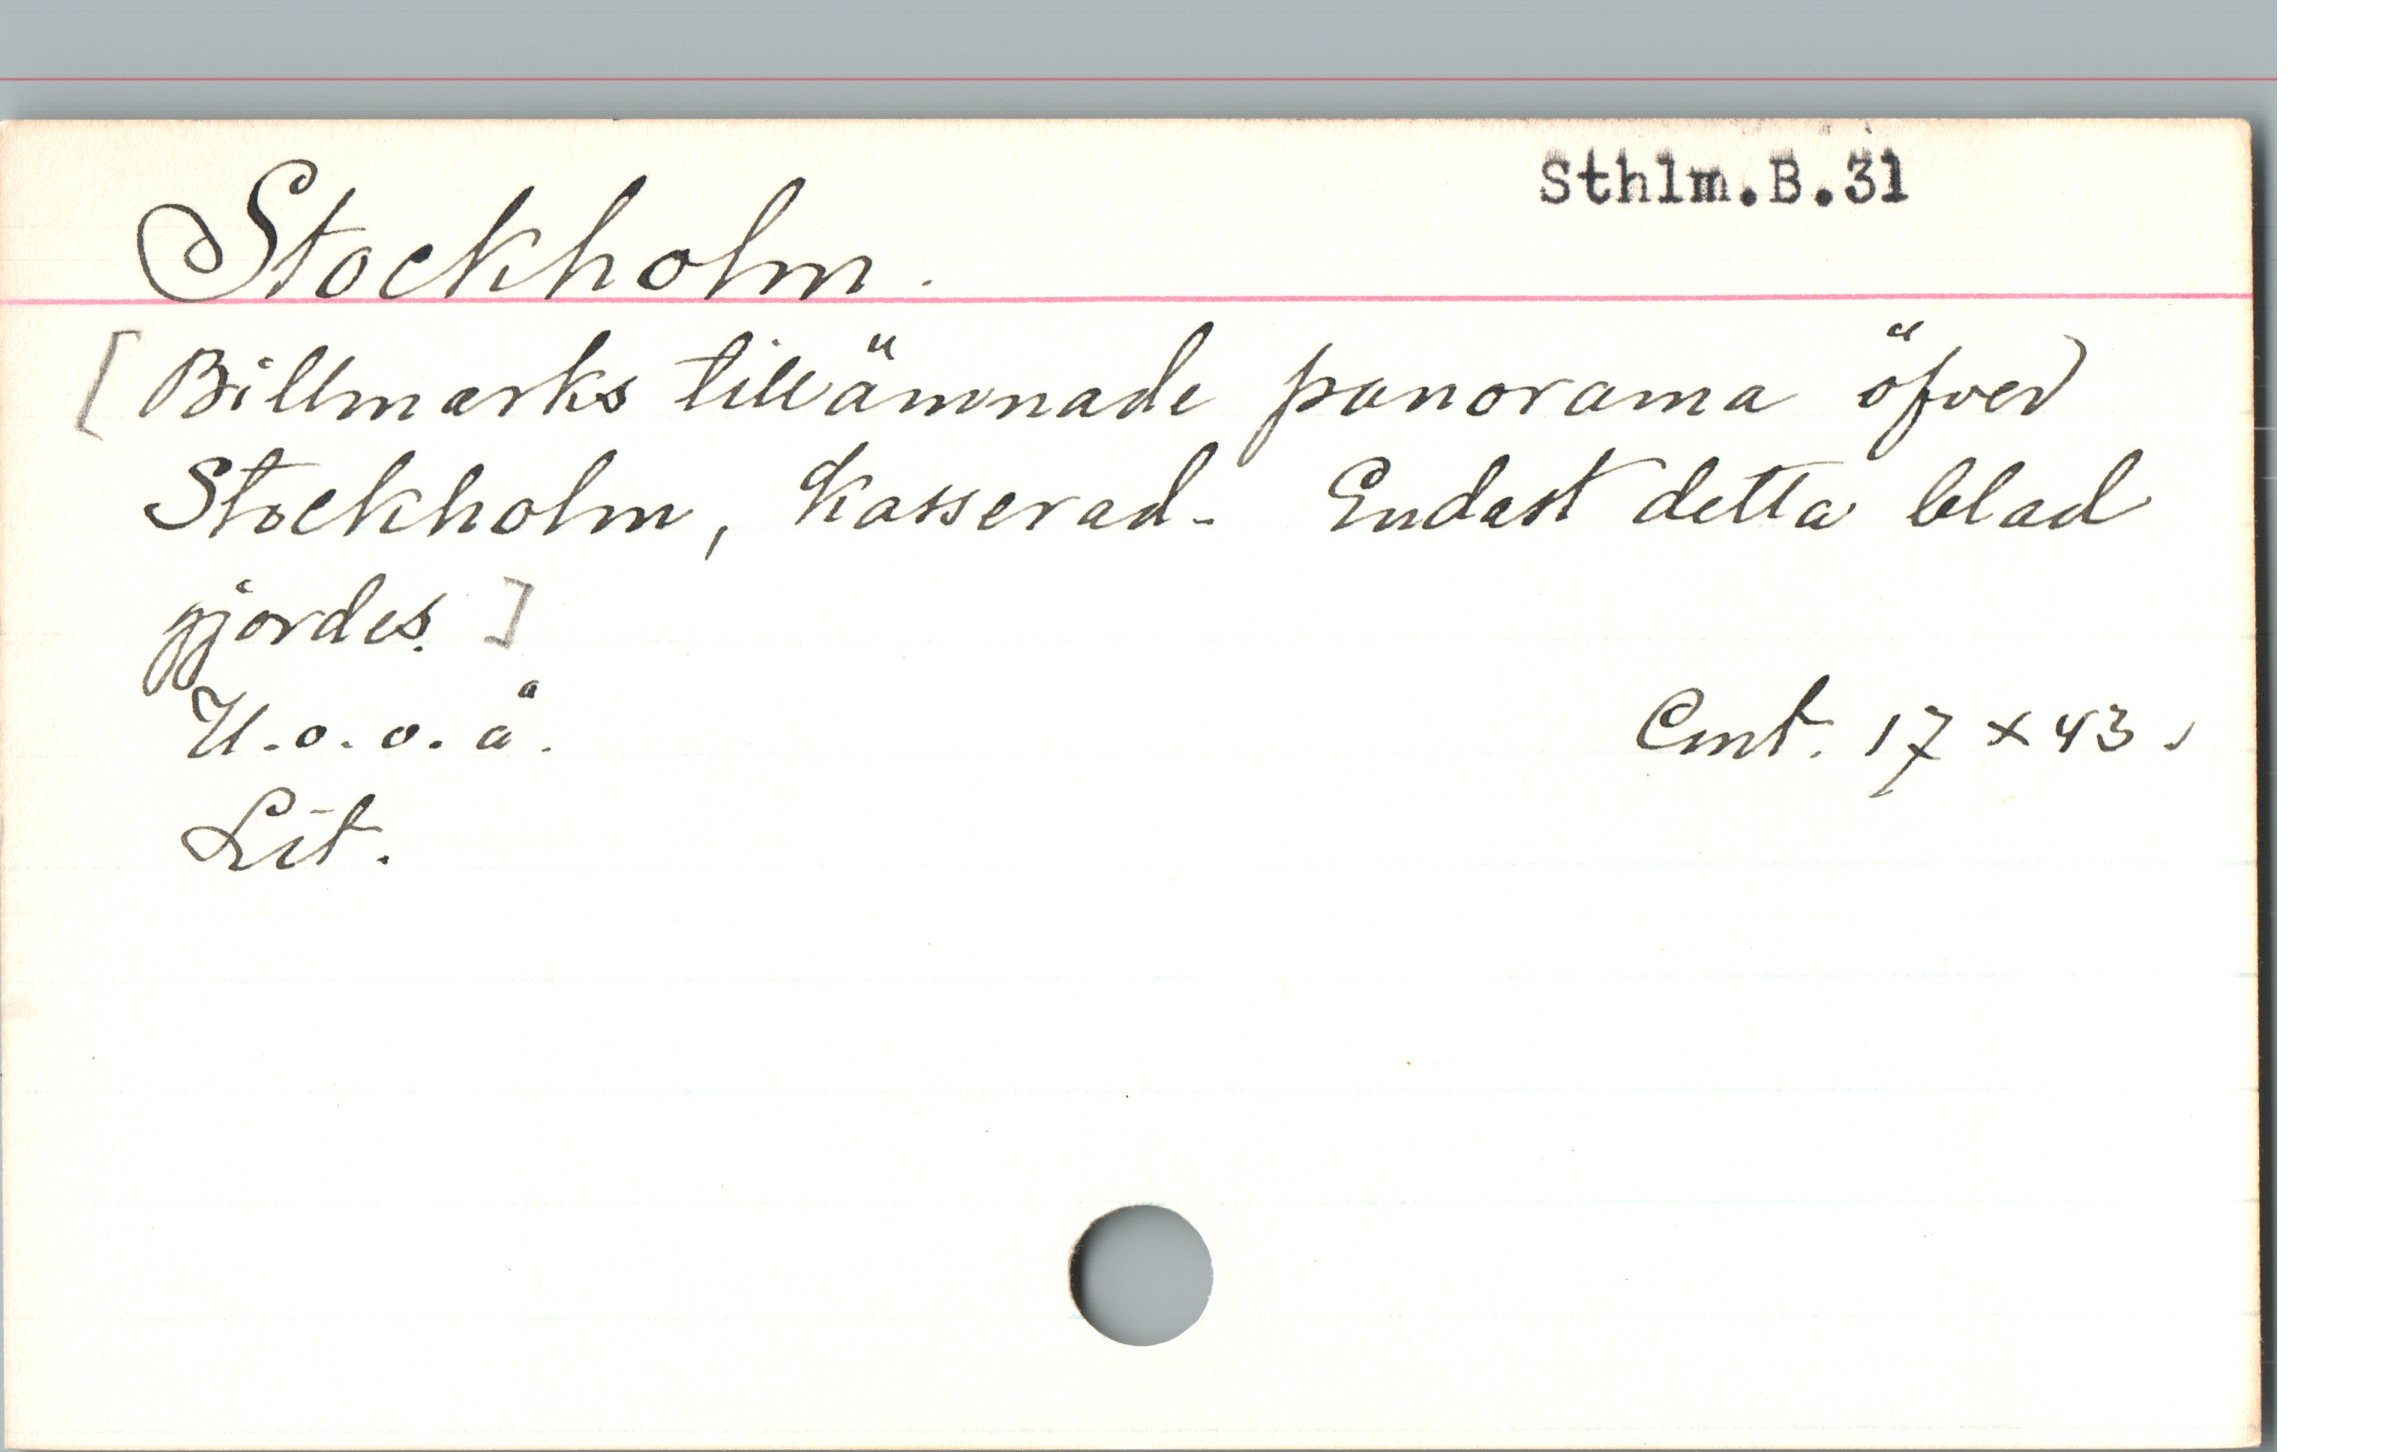 Sthlm.B.31
Stockholm.
[Billmarks tillämnade panorama öfver
Stockholm, kasserad. Endast detta blad
gjordes.]
U.o.o.å. Cmt. 17 x 43.
Lit.